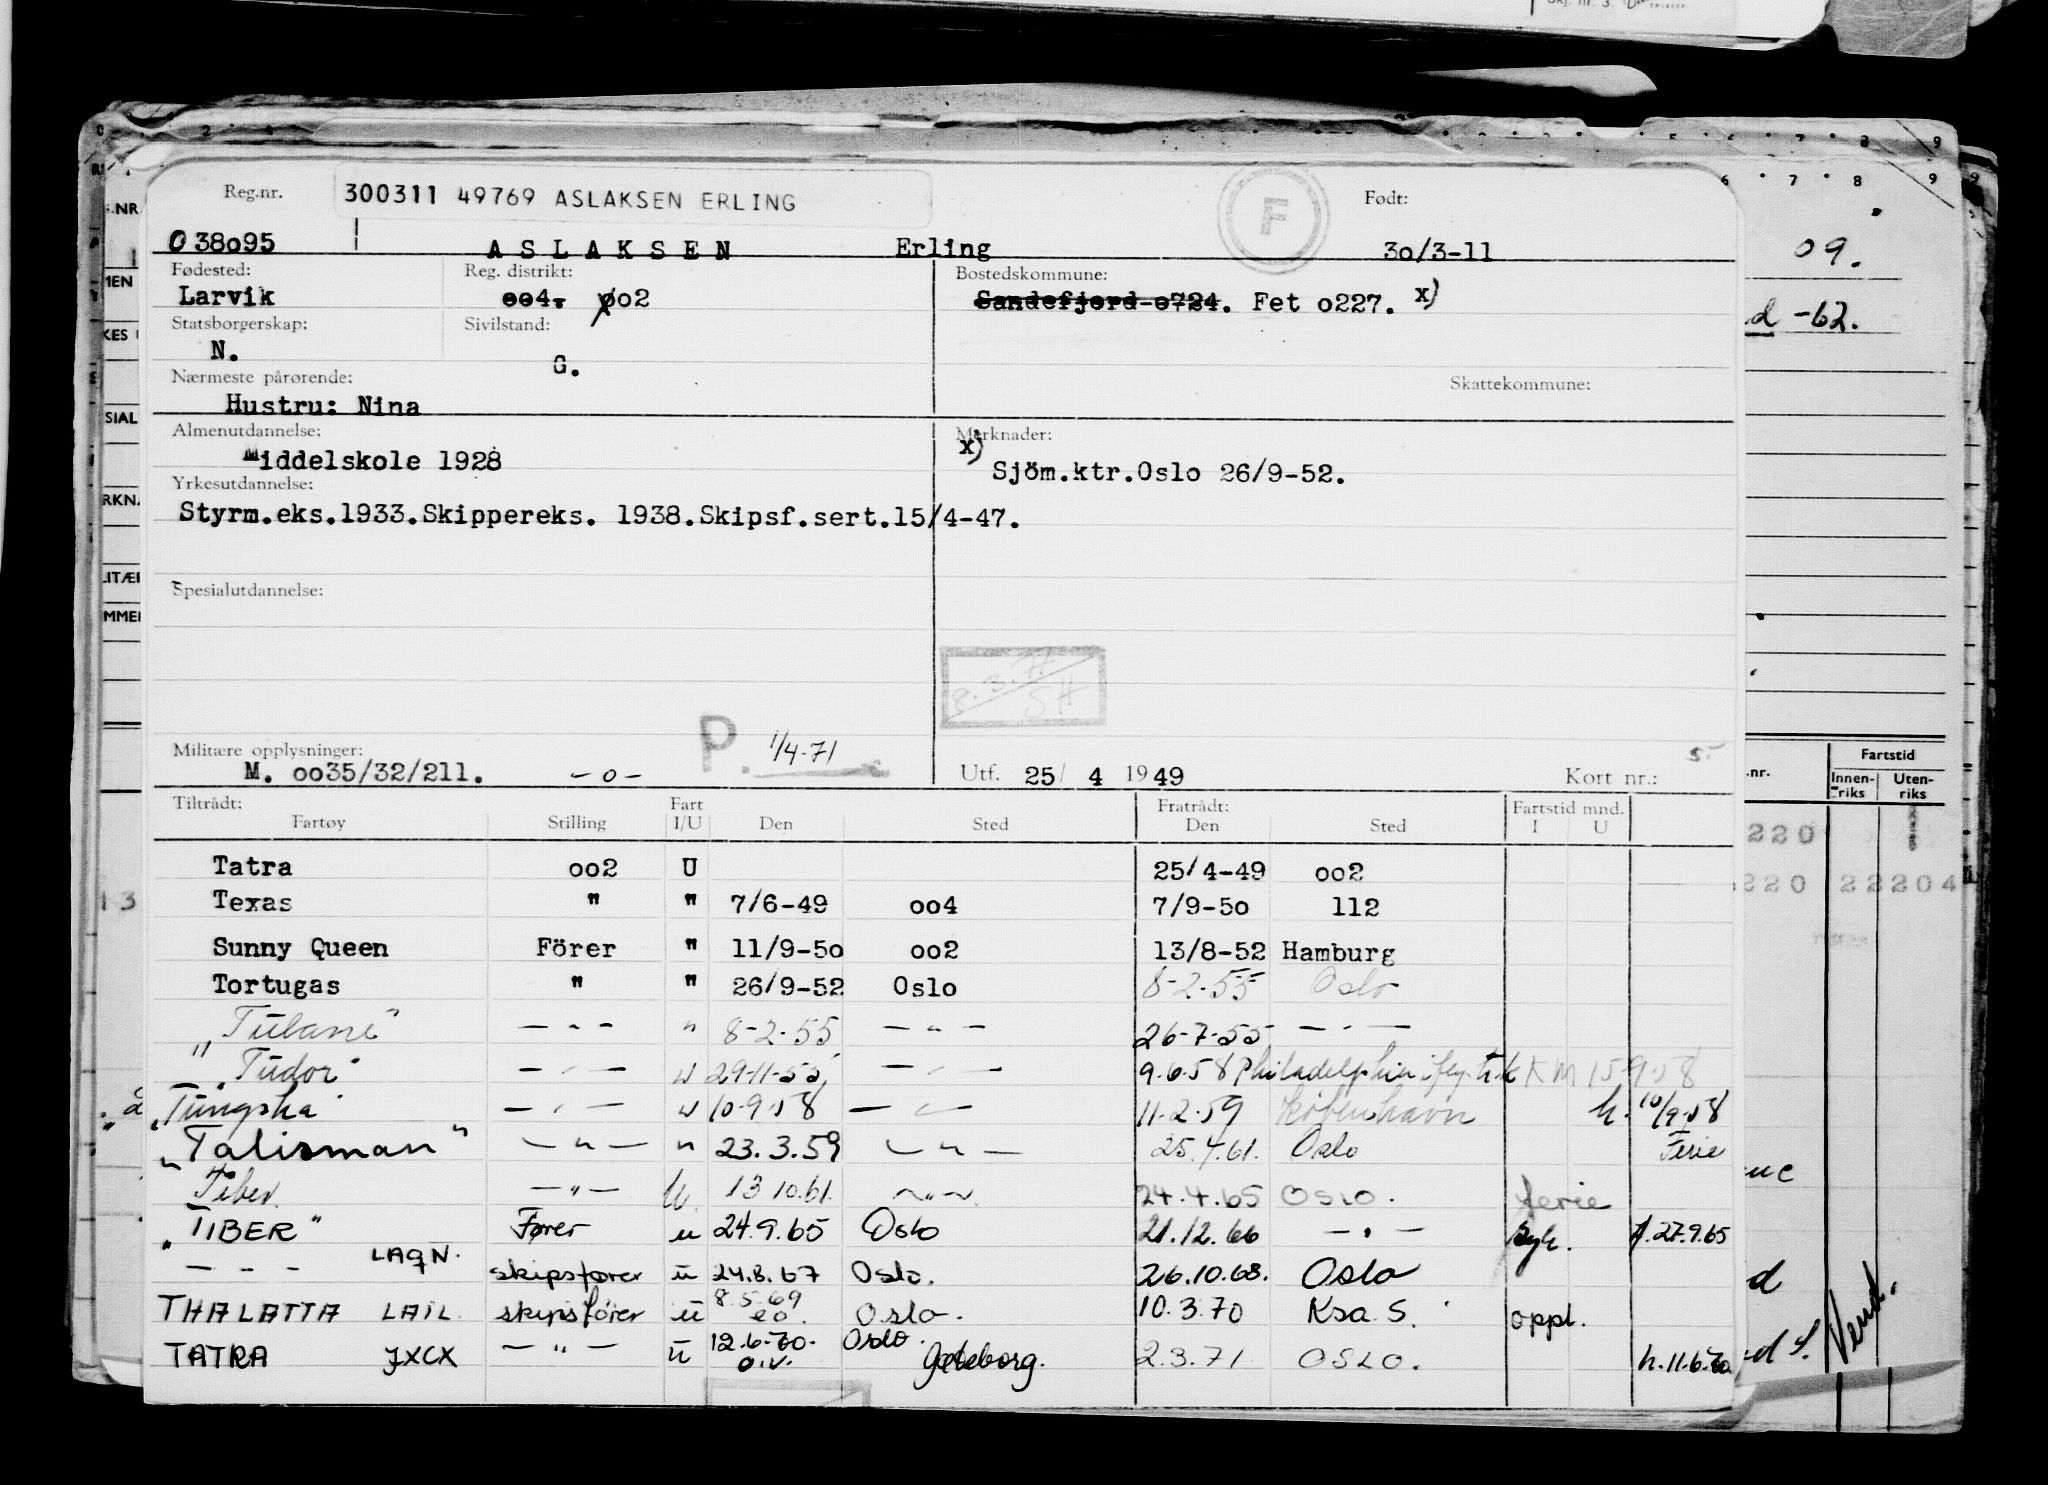 Reg.nr. 300311 49769 ASLAKSEN ERLING F Født:
038o95 A S L A K S E N Erling 3o/3-11
Fødested: Reg. distrikt: Bostedskommune:
Larvik oo4. oo2 Sandefjord o724. Fet o227. x)
Statsborgerskap: Sivilstand:
N. G.
Nærmeste pårørende: Skattekommune:
Hustru: Nina
Almenutdannelse: Merknader:
Middelskole 1928 x) Sjöm.ktr.Oslo 26/9-52.
Yrkesutdannelse:
Styrm.eks.1933.Skippereks. 1938.Skipsf.sert.15/4-47.
Spesialutdannelse:
8.3.71
SH
P. 1/4-71
Militære opplysninger:
M. oo35/32/211. -o- Utf. 25/ 4 1949 Kort nr.: 5
Tiltrådt: Fart Fratrådt: Fartstid mnd.
Fartøy Stilling I/U Den Sted Den Sted I U
Tatra oo2 U 25/4-49 oo2
Texas " " 7/6-49 oo4 7/9-5o 112
Sunny Queen Förer " 11/9-5o oo2 13/8-52 Hamburg
Tortugas " " 26/9-52 Oslo 8-2-55 Oslo
"Tulane" - " - " 8-2-55 - " - 26-7-55 - " -
"Tudor" - " - u 29-11-55 - " - 9.6.58 Philadelphia KM 15-9-58
"Tungsha" - " - u 10-9-58 - " - 11-2-59 København h. 10/9-58
"Talisman" - " - " 23.3.59 - " - 25.4.61. Oslo Ferie
Tiber - " - U 13 10.61. - " - 24.4.65 OSLO. ferie
"TIBER" Fører u 24.9.65 Oslo 21.12.66 - " - Syk. A.27.9.65
- - - LAQN. skipsfører u 24.8.67 Oslo. 26.10.68. Oslo
THALATTA LAIL. skipsfører u 8.5.69 eo. Oslo. 10.3.70 Ksa S. oppl.
TATRA JXCX - " - u 12.6.70. o.v. Oslo. Gøteborg. 2.3.71 OSLO. h.11.6.70
09.
-62.
Fartstid
Innen-riks Uten-riks
220
220 22204
Vend.